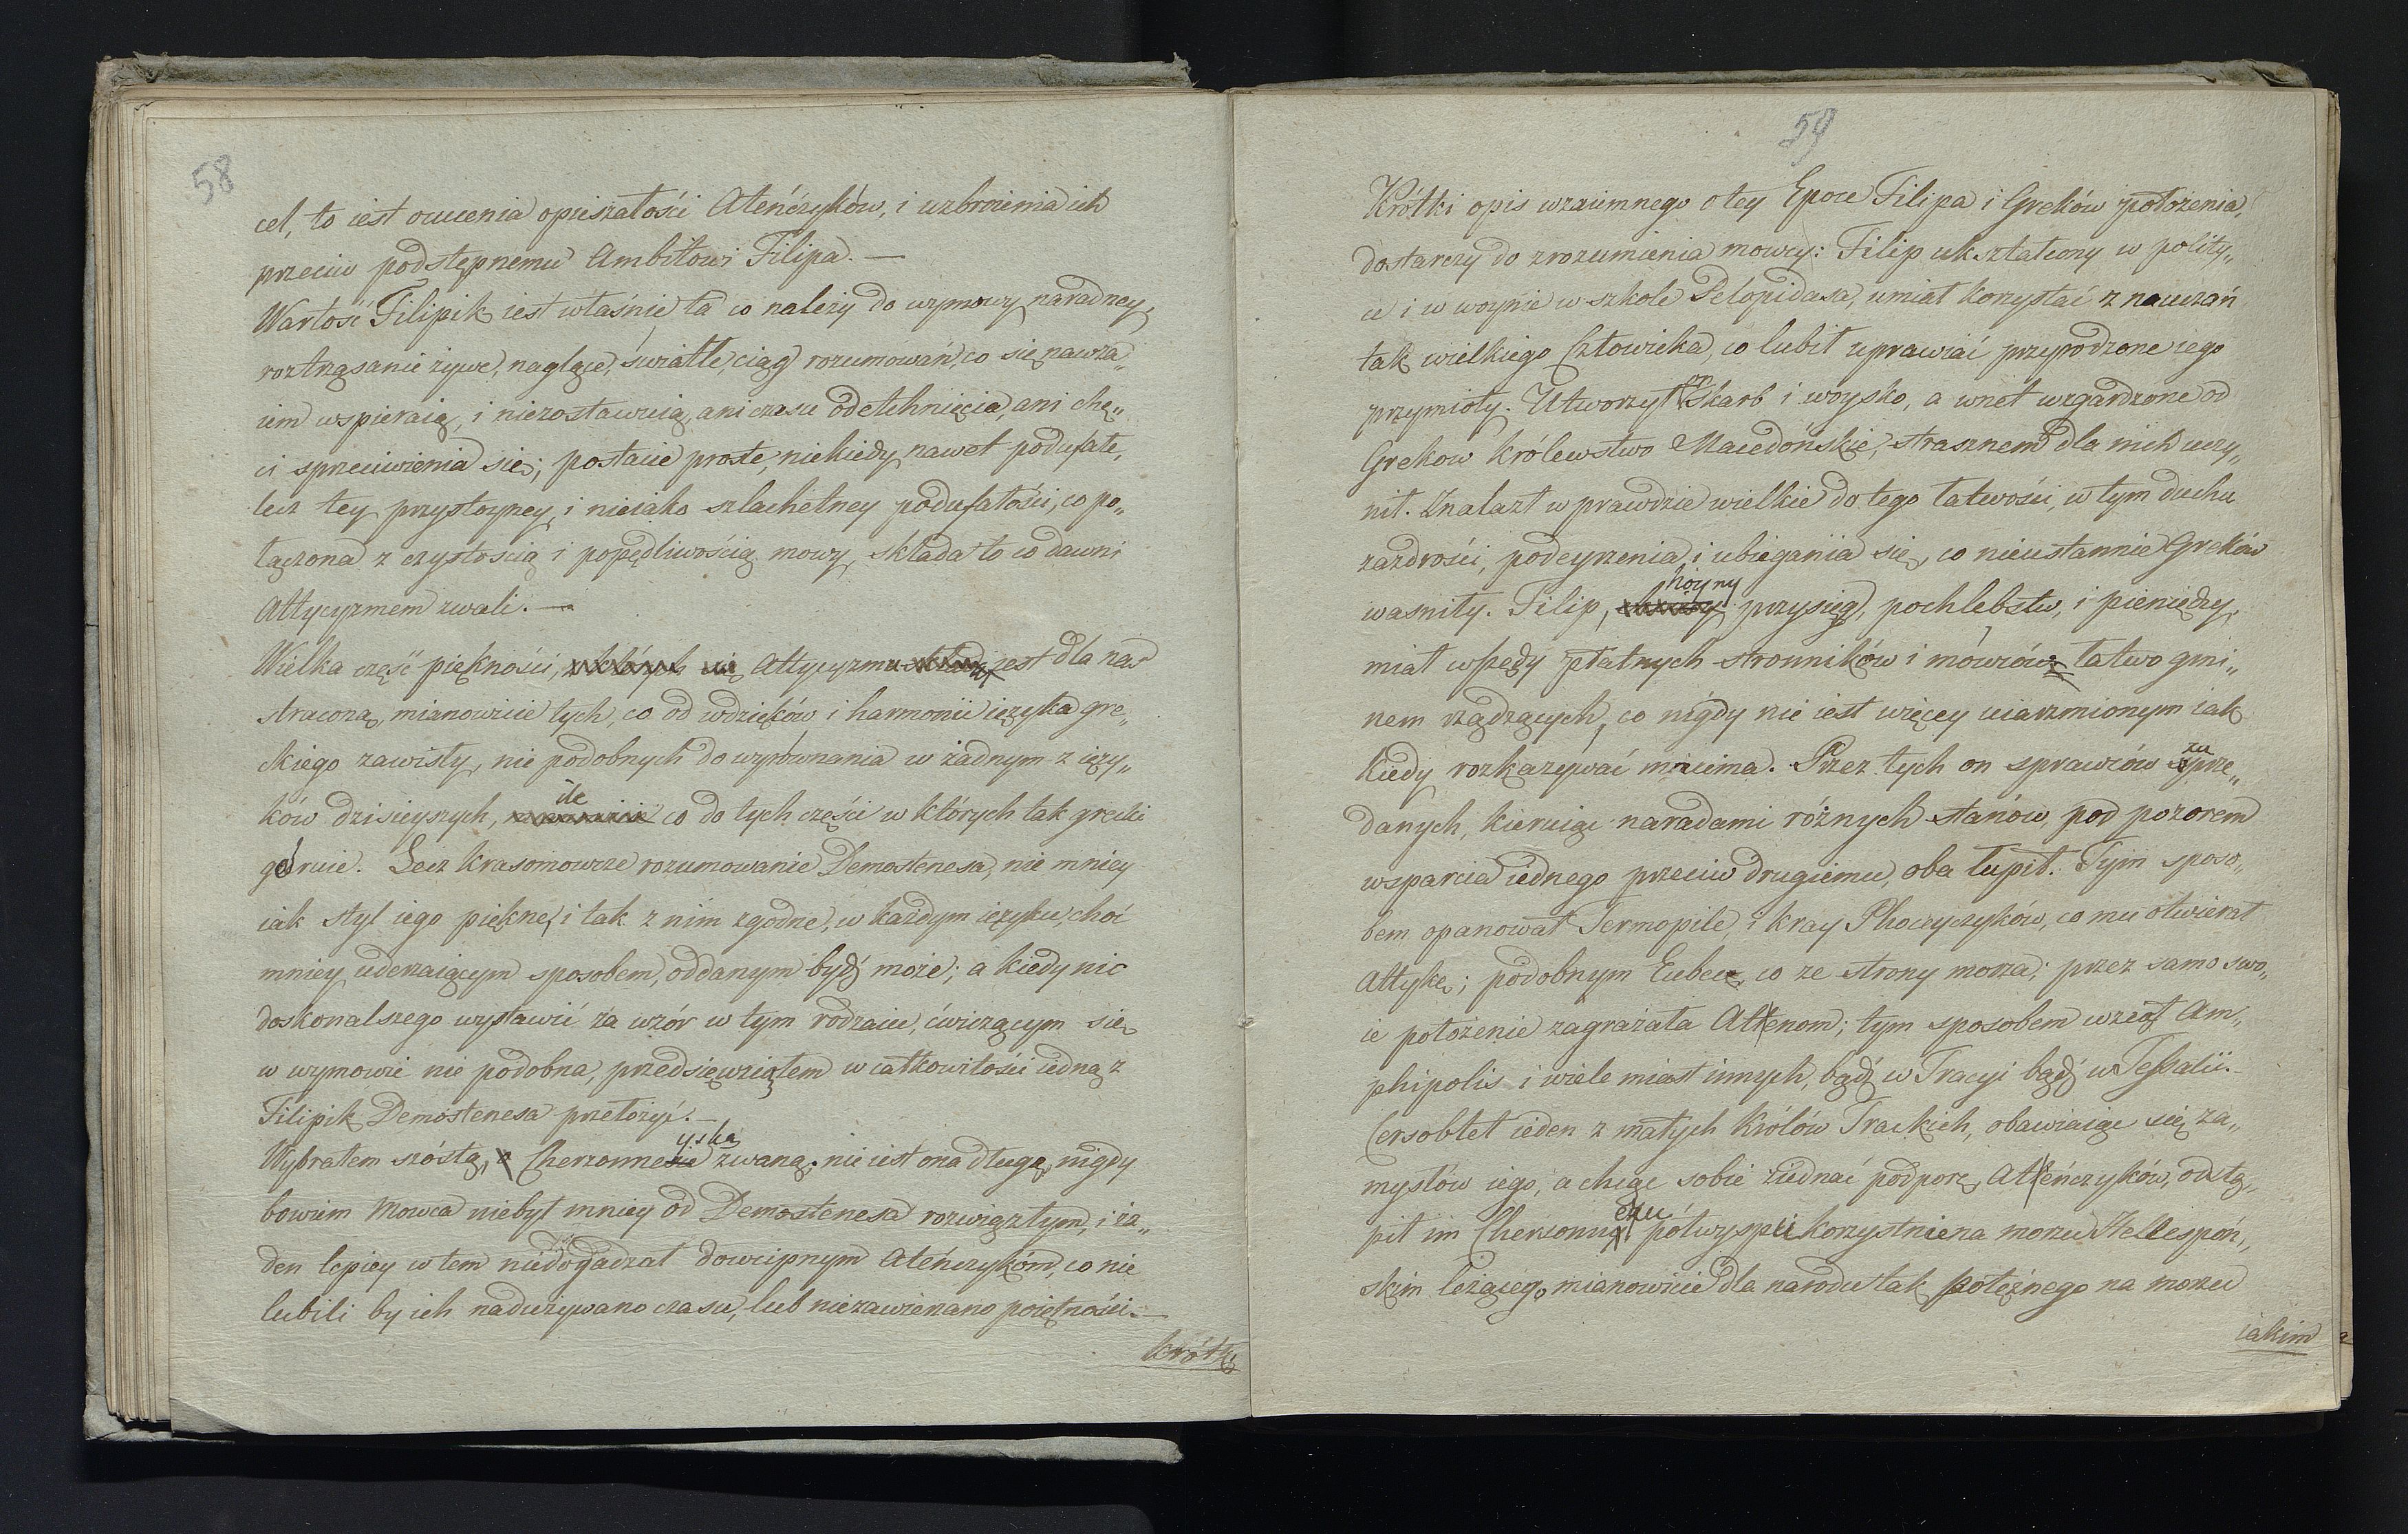 58
cel, to iest ocucenia opieszałości Ateńczyków, i uzbroienia ich
przeciw podstępnemu Ambitowi Filipa. —
Wartość Filipik iest właśnie ta co należy do wymowy naradney,
roztrząsanie żywe, naglące, światłe, ciąg rozumowań, co się nawza„
iem wspieraią, i niezostawuią, ani czasu odetchnięcia, ani chę„
ci sprzeciwienia się; postacie proste, niekiedy nawet podufałe,
lecz tey przystoyney, i nieiako szlachetney podufałości, co po„
łączona z czystością i popędliwością mowy, składa to co dawni
Attycyzmem zwali. —
Wielka część piękności, z których się Attycyzmu składa iest dla nas
stracona, mianowicie tych, co od wdzięków i harmonii ięzyka gre„
ckiego zawisły, nie podobnych do wyrównania w żadnym z ięzy„
ków dzisieyszych, ile co do tych części w których tak grecki
góruie. Lecz krasomowcze rozumowanie Demostenesa, nie mniey
iak styl iego piękne, i tak z nim zgodne, w każdym ięzyku, choć
mniey uderzaiącym sposobem, oddanym bydź może; a kiedy nic
doskonalszego wystawić za wzór w tym rodzaiu, ćwiczącym się
w wymowie nie podobna, przedsięwziąłem w całkowitości iedną z
Filipik Demostenesa przełożyć. —
yską
Wybrałem szóstą, o Cherzonnesie zwaną; nie iest ona długą, nigdy
bowiem Mowca niebył mniey od Demostenesa rozwiązłym, i ża„
den lepiey w tem niedogadzał dowcipnym Ateńczykóm, co nie
lubili by ich nadużywano czasu, lub niezawierzano poiętności. —
krótki
59
Krótki opis wzaiemnego o tey Epoce Filipa i Greków położenia,
dostarczy do zrozumienia mowcy: Filip ukształcony w polity„
ce i w woynie w szkole Pelopidasa, umiał korzystać z nauczań
tak wielkiego Człowieka, co lubił uprawiać przyrodzone iego
przymioty. Utworzył on skarb i woysko, a wnet wzgardzone od
Grekow królewstwo Macedońskie, strasznem dla nich uczy„
nił. Znalazł w prawdzie wielkie do tego łatwości, w tym duchu
zazdrości, podeyrzenia, i ubiegania się, co nieustannie Greków
hoyny
wasniły. Filip, przysiąg, pochlebstw, i pieniędzy,
miał wszędy płatnych stronników i mówców łatwo gmi„
nem rządzących, co nigdy nie iest więcey uiarzmionym iak
kiedy rozkazywać mniema. Przez tych on sprawców zaprze„
danych, kieruiąc naradami różnych stanów, pod pozorem
wsparcia iednego przeciw drugiemu, oba łupił. Tym sposo„
bem opanował Termopile, i kray Phoceyczyków, co mu otwierał
Attykę; podobnym Eubeę, co ze strony morza; przez samo swo„
ie położenie zagrażała Attenom; tym sposobem wziął Am„
phipolis i wiele miast innych, bądź w Tracyi bądź w Tessalii. —
Cersoblet ieden z małych Królów Trackich, obawiaiąc się za„
mysłów iego, a chcąc sobie ziednać podporę Atteńczyków, odstą„
pił im Chersonnezu półwyspu korzystnie na morzu Hellespoń„
skim leżącego, mianowicie dla narodu tak potężnego na morzu
iakim